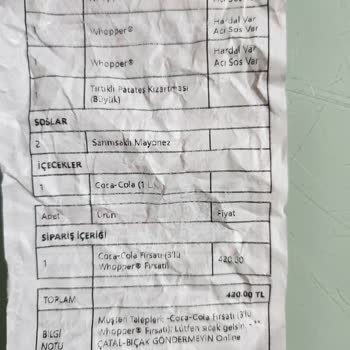 Whopper®
Hardal Var
Acı Sos Var
Whopper®
Hardal Var
Acı Sos Var
1
Tırtıklı Patates Kızartması
(Büyük)
SOSLAR
2 Sarımsaklı Mayonez
İÇECEKLER
1 Coca-Cola (1 L)
Adet Ürün Fiyat
SİPARİŞ İÇERİĞİ
1
Coca-Cola Fırsatı (3'lü
Whopper® Fırsatı)
420.00
TOPLAM 420.00 TL
BİLGİ
NOTU
Müşteri Talepleri: -Coca-Cola Fırsatı (3'lü
Whopper® Fırsatı): Lütfen sıcak gelsin. **
ÇATAL-BIÇAK GÖNDERMEYİN Online